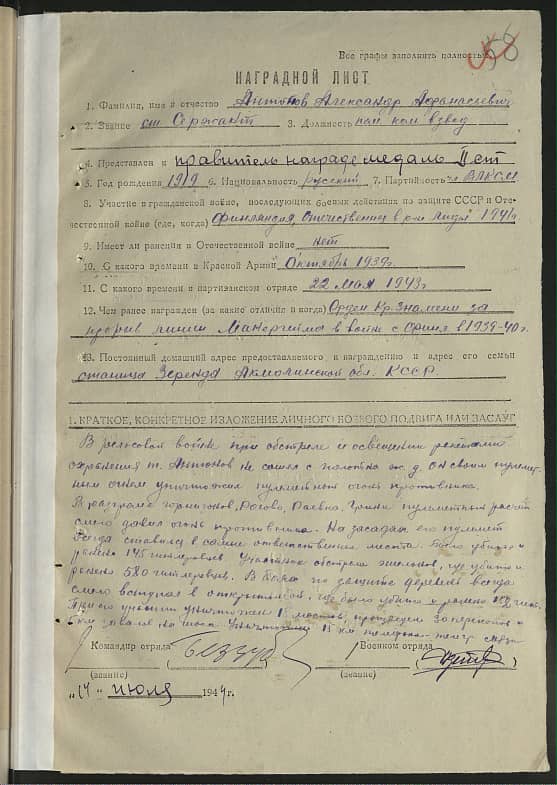 Все графы заполнить полностью
НАГРАДНОЙ ЛИСТ
1. Фамилия, имя и отчество Антонов Александр Афанасьевич
2. Звание ст Сержант 3. Должность пом. ком. взвод
4. Представлен к правитель награде медаль II ст
5. Год рождения 1919 6. Национальность русский 7. Партийность чл ВЛКСМ
8. Участие в гражданской войне, последующих боевых действиях по защите СССР и Оте-
чественной войне (где, когда) Финляндия, Отечественная в р-не 1941г.
9. Имеет ли ранения в Отечественной войне нет
10. С какого времени в Красной Армии Октябрь 1939г.
11. С какого времени в партизанском отряде 22 мая 1943г
12. Чем ранее награжден (за какие отличия и когда) Орден Кр. Знамени за
прорыв линии Манергейма в войне с Финл в 1939-40г.
13. Постоянный домашний адрес предоставляемого к награждению и адрес его семьи
станица Зеренда Акмолинской обл. КССР.
1. КРАТКОЕ, КОНКРЕТНОЕ ИЗЛОЖЕНИЕ ЛИЧНОГО БОЕВОГО ПОДВИГА ИЛИ ЗАСЛУГ
В рельсовой войне при обстреле и освещении ракетами
охранения т. Антонов не сошел с полотна ж.д. Он своим пулемет-
ным огнем уничтожил пулеметный огонь противника.
В разгроме гарнизонов, Рогово, Раевка, пулеметный расчет
смело давил огонь противника. На засадах его пулемет
всегда ставился в самые ответственные места. Было убито и
ранено 145 гитлеровцев. Участник обстрела эшелонов, где убито и
ранено 580 гитлеровцев. В боях по защите деревень всегда
смело вступал в открытый бой, где было убито и ранено чел.
При его участии уничтожен 18 мостов, проведено
5 км завала на шоссе. Уничтожено 15 км телефоно-телегр связи
Командир отряда Военком отряда
(звание) (звание)
„14" июля 1944г.